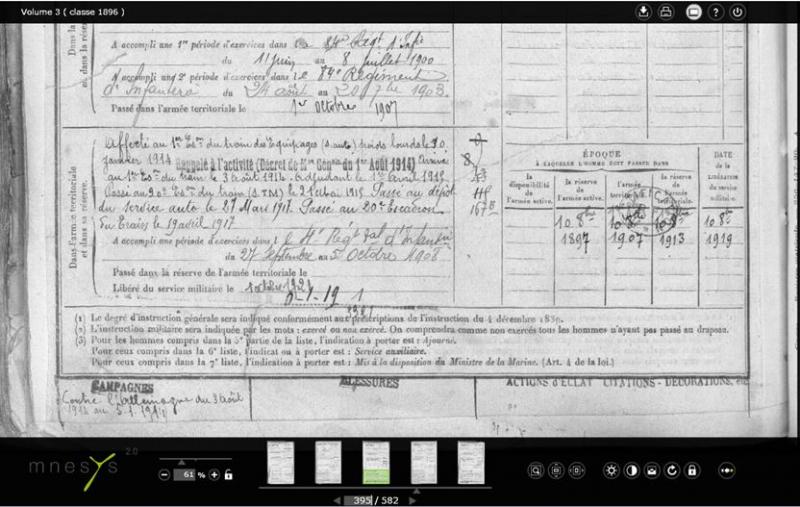 Volume 3 ( classe 1896 )
A accompli une 1re période d'exercices dans le 84e Regt d'Infie
du 11 juin au 8 juillet 1900
A accompli une 2e période d'exercices dans le 84e Régiment
d'Infanterie du 24 août au 20 7bre 1903.
Passé dans l'armée territoriale le 1er Octobre 1907
Dans la
et dans la rés
Dans l'armée territoriale
et dans sa réserve.
Affecté au 1er Eon du train des Equipages (S. auto) poids lourds le 10
janvier 1914 Rappelé à l'activité (Décret de Mon Génle du 1er Août 1914) Arrivé
au 1er Eon du train le 3 août 1914. Adjudant le 1er Avril 1915
Passé au 20e Eon du train (S.TM) le 21 mai 1915. Passé au dépôt
du service auto le 27 Mars 1917. Passé au 20e Escadron
du train le 19 avril 1917
A accompli une période d'exercices dans le 4e Regt tal d'Infanterie
du 27 Septembre au 5 Octobre 1908
Passé dans la réserve de l'armée territoriale le
Libéré du service militaire le
ÉPOQUE
À LAQUELLE L'HOMME DOIT PASSER DANS
DATE
de la
LIBÉRATION
du service
militaire.
la
disponibilité
de
l'armée active.
la réserve
de
l'armée active.
l'armée
la réserve
de l'armée
10 8bre
1897
1907
1913
10 8bre
1919
(1) Le degré d'instruction générale sera indiqué conformément aux prescriptions de l'instruction du 4 décembre 1889.
(2) L'instruction militaire sera indiquée par les mots : exercé ou non exercé. On comprendra comme non exercés tous les hommes n'ayant pas passé au drapeau.
(3) Pour les hommes compris dans la 5e partie de la liste, l'indication à porter est : Ajourné.
Pour ceux compris dans la 6e liste, l'indicat on à porter est : Service auxiliaire.
Pour ceux compris dans la 7e liste, l'indication à porter est : Mis à la disposition du Ministre de la Marine. (Art. 4 de la loi.)
CAMPAGNES
BLESSURES
ACTIONS D'ÉCLAT CITATIONS - DÉCORATIONS, etc
Contre l'Allemagne du 3 août
1914 au 5.1.1919
mnesys 2.0
61 %
395 / 582